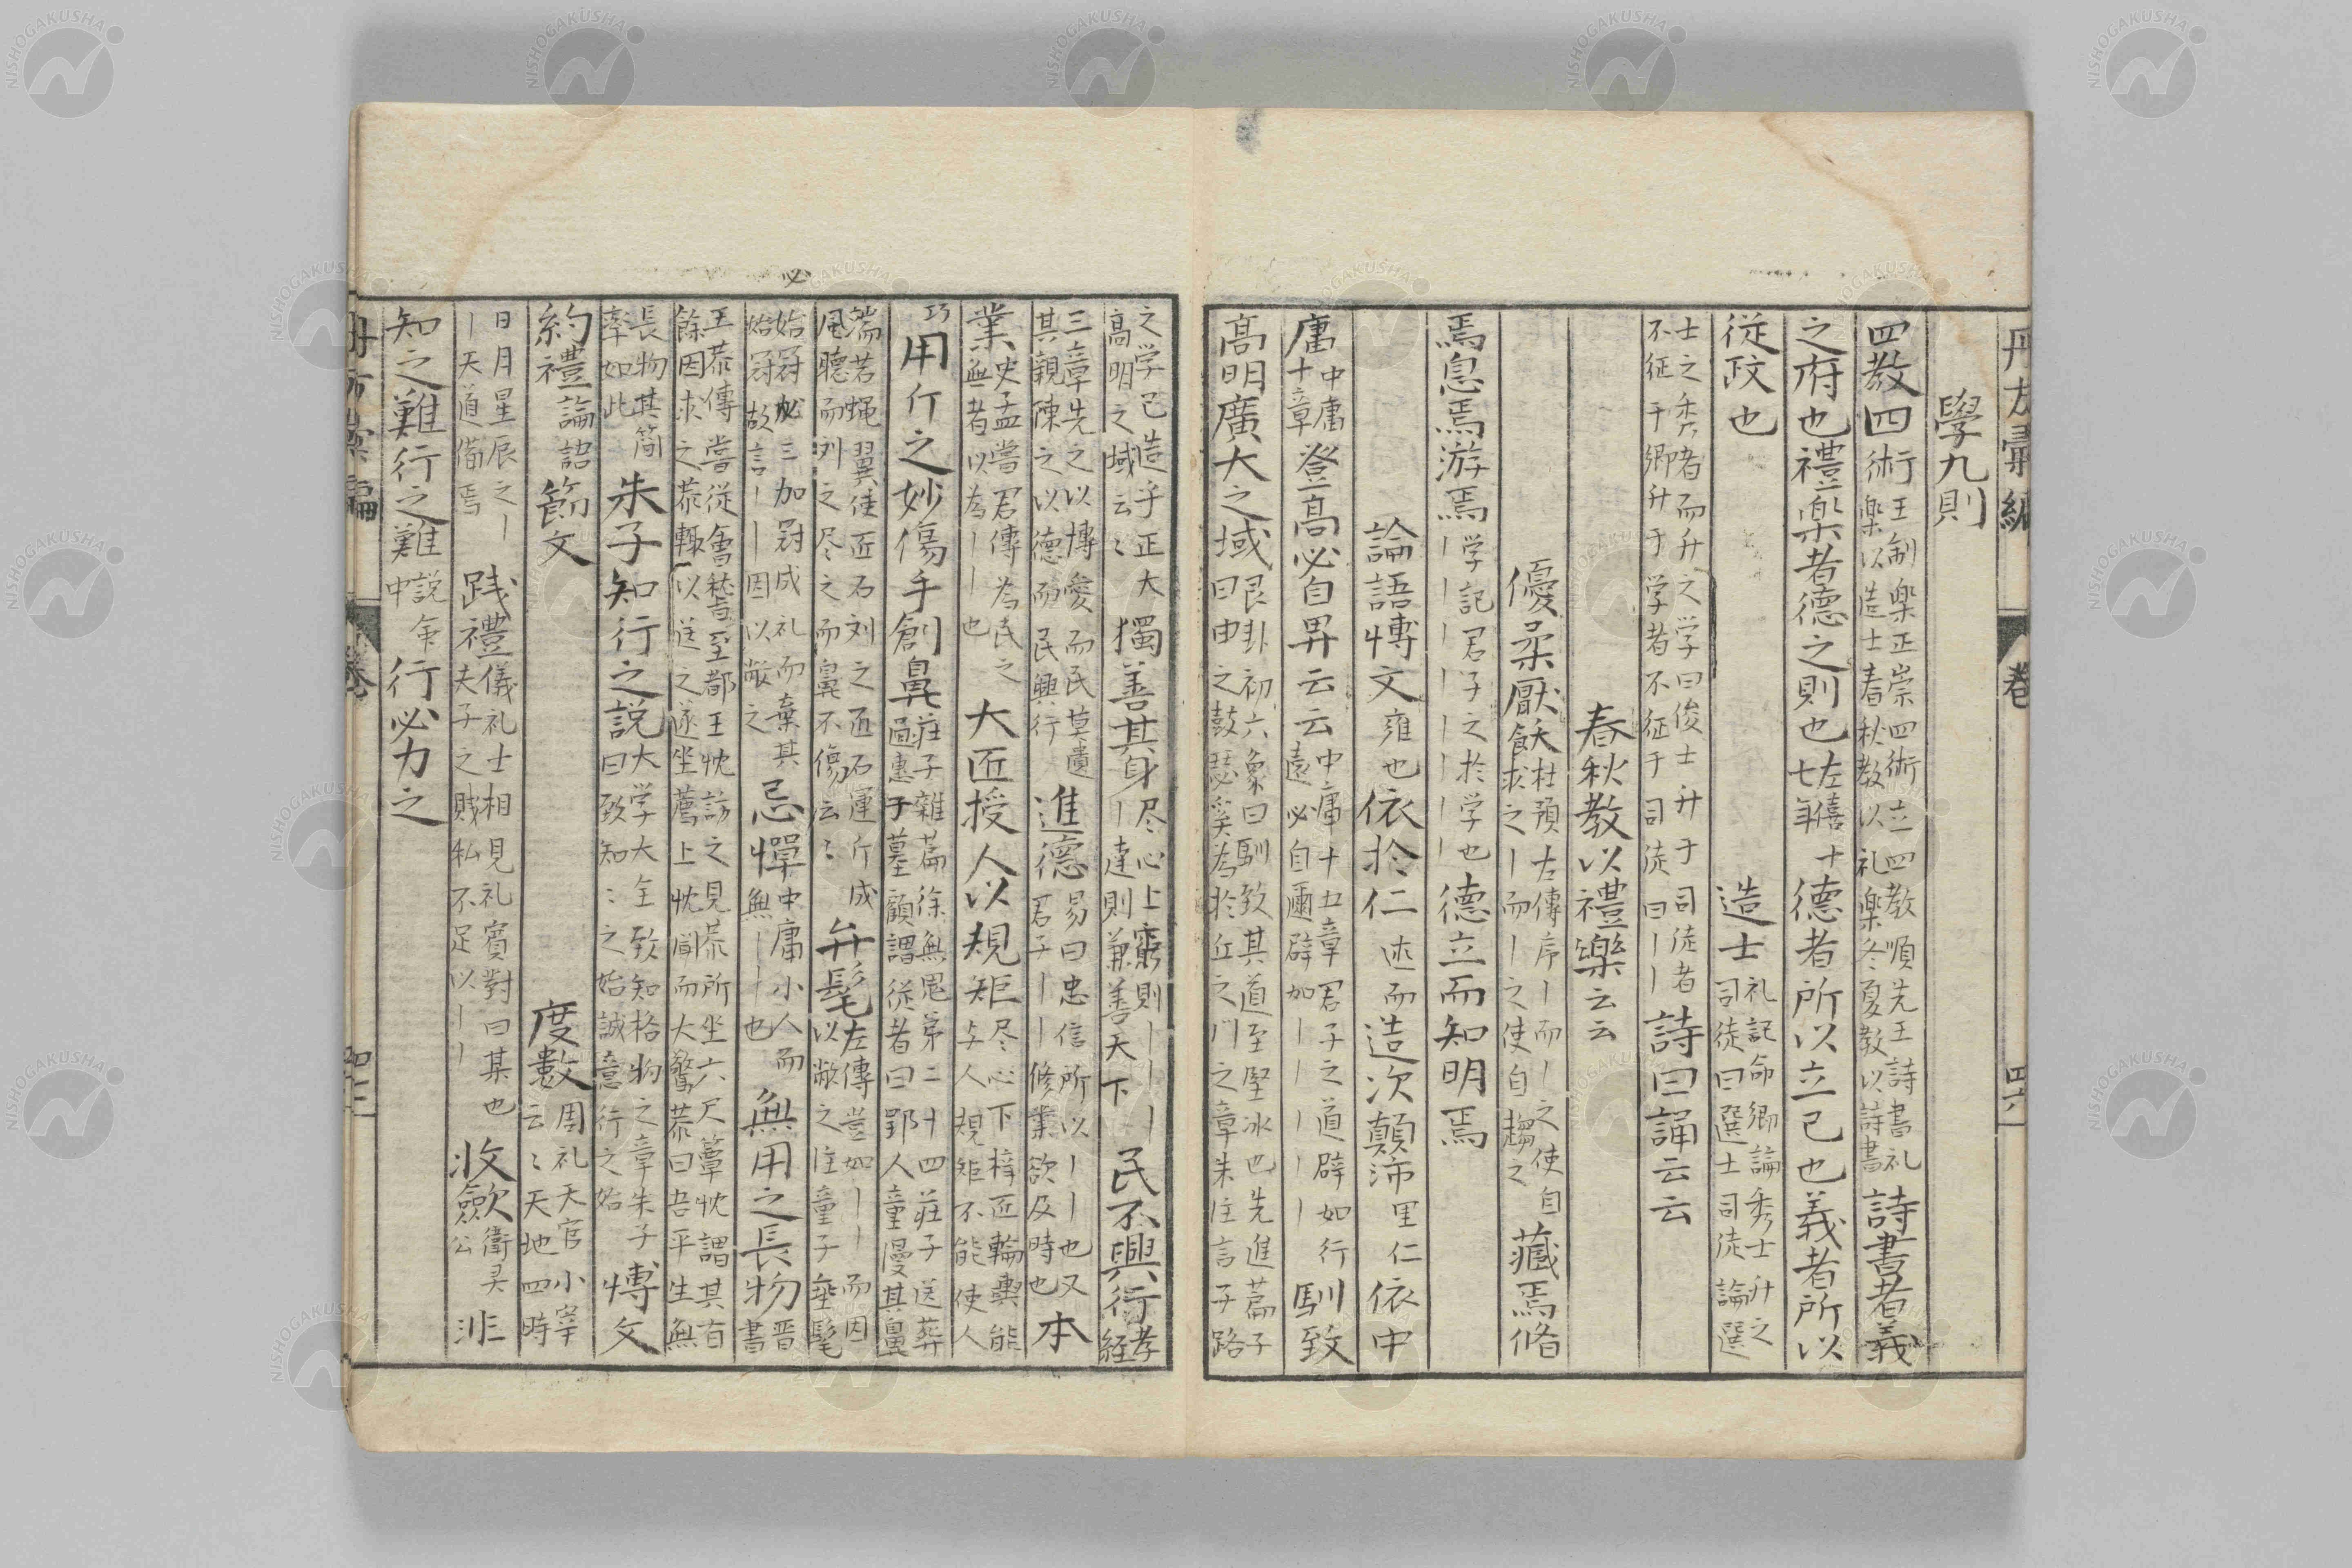 學九則
四教四術王制楽正崇四術立四教順先王詩書礼楽以造士春秋教以礼楽冬夏教以詩書詩書者義
之府也禮楽者德之則也左僖十七年德者所以立己也義者所以
従政也 造士礼記命郷論秀士升之司徒曰選士司徒論選
士之秀者而升之学曰俊士升于司徒者不征于郷升于学者不征于司徒曰〡〡詩曰誦云云
春秋教以禮樂云云
優柔厭飫杜預左傳序〡而〡之使自求之〡而〡之使自趨之藏焉脩
焉息焉游焉学記君子之於学也〡〡〡〡〡〡〡〡德立而知明焉
論語博文雍也依於仁述而造次顛沛里仁依中
庸中庸十章登高必自卑云云中庸十五章君子之道辟如行遠必自邇辟如〡〡〡〡馴致
高明廣大之域艮卦初六象曰馴致其道至堅冰也先進篇子曰由之鼓瑟奚為於丘之門之章朱注言子路
之学已造乎正大高明之域云〻獨善其身尽心上窮則〡〡〡〡達則兼善天下民不興行孝経
三章先之以博愛而民莫遺其親陳之以德而民興行進德易曰忠信所以〡〡也又君子〡〡修業欲及時也本
業史孟嘗君傳為民之無者以為〡〡也大匠授人以規矩尽心下梓匠輪輿能与人規矩不能使人
巧用斤之妙傷手創鼻荘子雜篇徐無鬼第二十四荘子送葬過惠子墓顧謂従者曰郢人堊漫其鼻
端若蝿翼使匠石刘之匠石運斤成風聴而刘之尽之而鼻不傷云〻弁髦左傳豈如〡〡而因以敝之注童子垂髦
始冠必三加冠成礼而棄其始冠故言〡〡因以敝之忌憚中庸小人而無〡〡也無用之長物晋書
王恭傳嘗従會稽至都王忱訪之見恭所坐六尺簟忱謂其有餘因求之恭輙以送之遂坐薦上忱聞而大驚恭曰吾平生無
長物其簡率如此朱子知行之説大学大全致知格物之章朱子曰致知〻之始誠意行之始博文
約禮論語節文 度數周礼天官小宰云〻天地四時
日月星辰之〡〡天道備焉践禮儀礼士相見礼賓對曰某也夫子之賎私不足以〡〡收斂衛灵公非
知之難行之難説命中行必力之